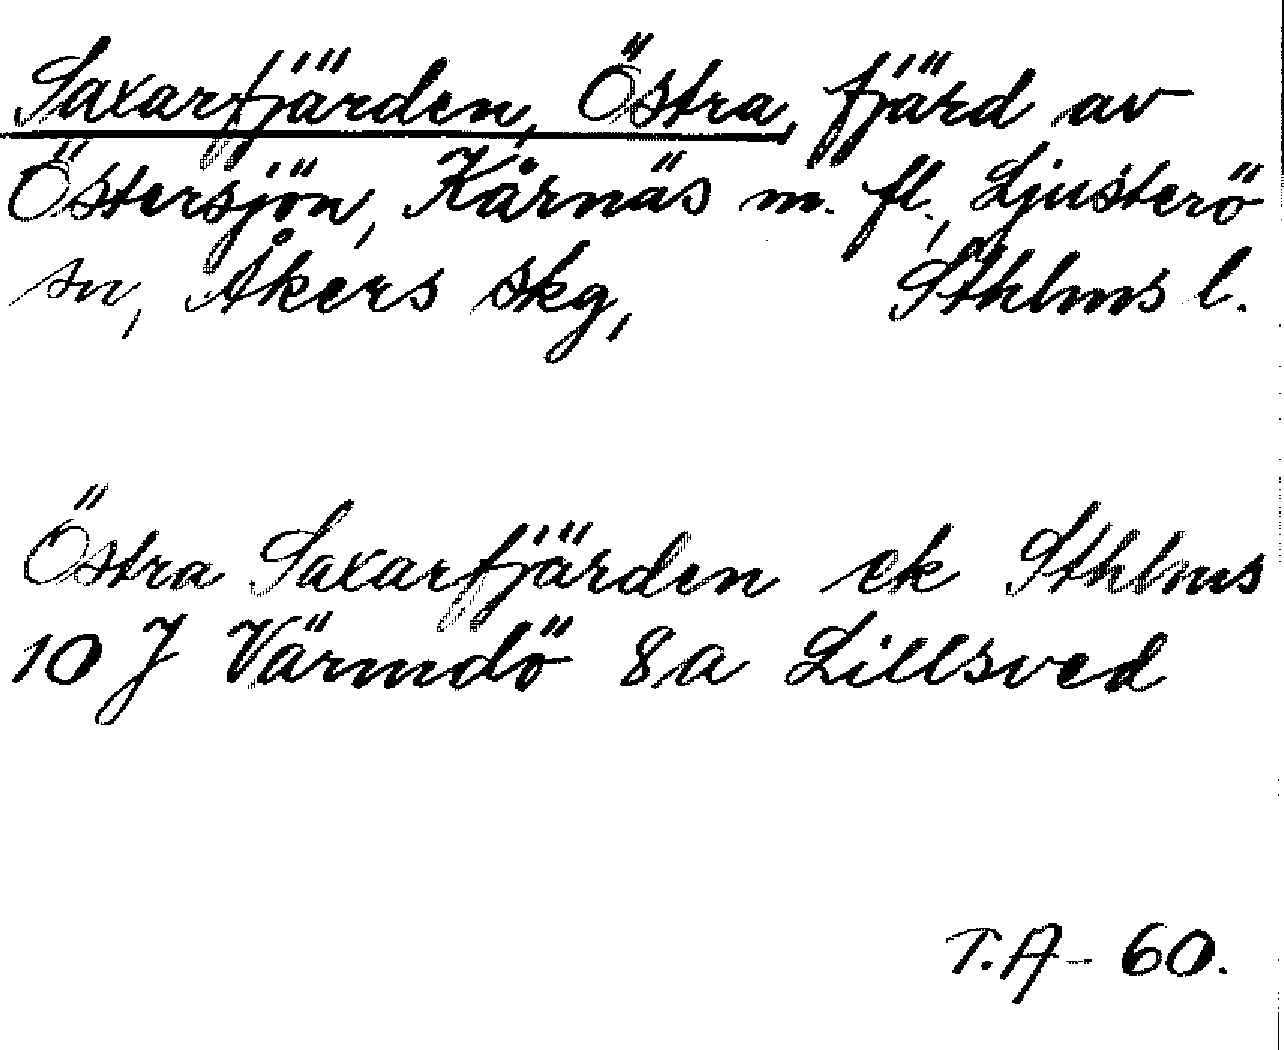 Saxarfjärden, Östra, fjärd av
Östersjön, Kårnäs m. fl., Ljusterö
sn, Åkers skg, Sthlms l.
Östra Saxarfjärden ek Sthlms
10 J Värmdö 8a Lillsved
T.A- 60.